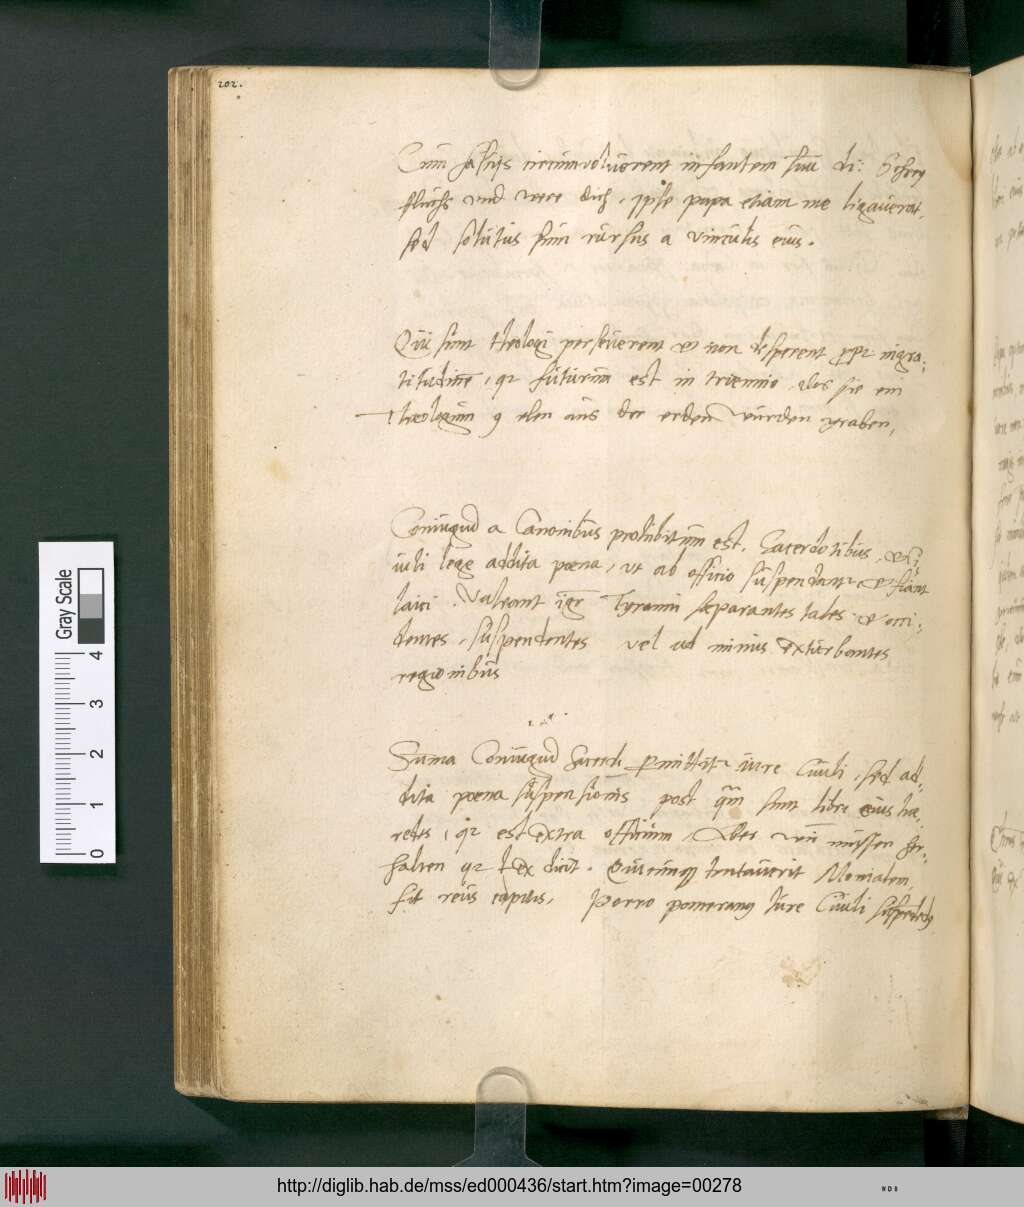 202.
Cum fascijs circumvoluerent infantem suum di: Schrey
fluchs und were dich, ipse papa etiam me ligauerat,
sed solutus sum rursus a vinculis eius.
Qui sunt theologi perseuerent et non desperent propter ingra:
titudinem, qr futurum est in triennio, das sie ein
theologum 9 elen aus der erden wurden graben,
Coniugium a Canonibus prohibitum est. Sacerdotibus, et Ci
uili lege addita poena, ut ab officio suspendantur et fiant
laici. Valeant igitur Tyranni separantes tales et occi:
dentes, suspendentes vel ad minus exturbantes
regionibus
Suma Coniugium Sacerdoti permittitur iure Ciuili, sed ad:
dita poena suspensionis post quam sunt liberi eius hae
redes, qr est extra officium, Aber wir mussen her:
halten qr lex dicit. Quicumque tentauerit Monialem,
sit reus capitis, Porro pomeranus Iure Ciuili
Gray Scale
4
3
2
1
0
http://diglib.hab.de/mss/ed000436/start.htm?image=00278